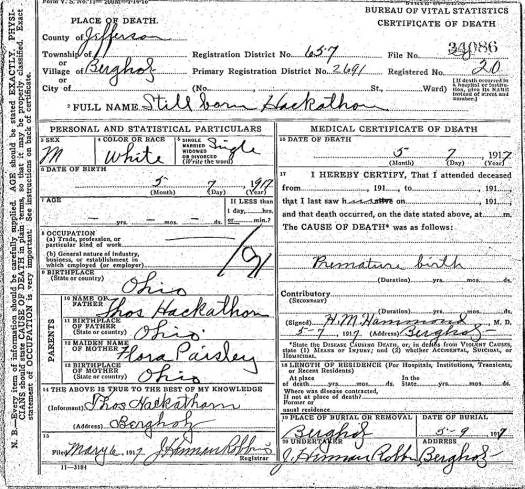 Form V. S. No. 11
BUREAU OF VITAL STATISTICS
PLACE OF DEATH.
CERTIFICATE OF DEATH
County of Jefferson
34086
Township of
Registration District No. 657
File No.
or
Village of Bergholz
Primary Registration District No. 2691
Registered No. 20
or
City of (No. St., Ward)
[If death occurred in a hospital or institution, give its NAME instead of street and number.]
2 FULL NAME Still born Hackathorn
PERSONAL AND STATISTICAL PARTICULARS
3 SEX M
4 COLOR OR RACE White
5 SINGLE MARRIED WIDOWED OR DIVORCED (Write the word) Sigle
6 DATE OF BIRTH
5 7 1917
(Month) (Day) (Year)
7 AGE
yrs. mos. ds.
If LESS than 1 day, hrs. or min.?
8 OCCUPATION
(a) Trade, profession, or particular kind of work
(b) General nature of industry, business, or establishment in which employed (or employer)
9 BIRTHPLACE
(State or country) Ohio
PARENTS
10 NAME OF FATHER Thos Hackathorn
11 BIRTHPLACE OF FATHER (State or country) Ohio
12 MAIDEN NAME OF MOTHER Flora Paisley
13 BIRTHPLACE OF MOTHER (State or country) Ohio
14 THE ABOVE IS TRUE TO THE BEST OF MY KNOWLEDGE
(Informant) Thos Hackatharn
(Address) Bergholz
15
Filed May 6, 1917 J. Hinman Robbins
Registrar
11—3184
MEDICAL CERTIFICATE OF DEATH
16 DATE OF DEATH
5 7 1917
(Month) (Day) (Year)
17 I HEREBY CERTIFY, That I attended deceased
from , 191 , to , 191
that I last saw h alive on , 191
and that death occurred, on the date stated above, at m.
The CAUSE OF DEATH* was as follows:
Premature birth
(Duration) yrs. mos. ds.
Contributory
(Secondary)
(Duration) yrs. mos. ds.
(Signed) H. M. Hammond M. D.
5-7, 1917, (Address) Bergholz
*State the DISEASE CAUSING DEATH, or, in deaths from VIOLENT CAUSES, state (1) MEANS OF INJURY; and (2) whether ACCIDENTAL, SUICIDAL, or HOMICIDAL.
18 LENGTH OF RESIDENCE (For Hospitals, Institutions, Transients, or Recent Residents)
At place of death yrs. mos. ds. In the State yrs. mos. ds.
Where was disease contracted, If not at place of death?
Former or usual residence
19 PLACE OF BURIAL OR REMOVAL
DATE OF BURIAL
Bergholz 5-9, 1917
20 UNDERTAKER
ADDRESS
J. Hinman Robbins Bergholz
N. B.—Every item of information should be carefully supplied. AGE should be stated EXACTLY. PHYSICIANS should state CAUSE OF DEATH in plain terms, so that it may be properly classified. Exact statement of OCCUPATION is very important. See instructions on back of certificate.